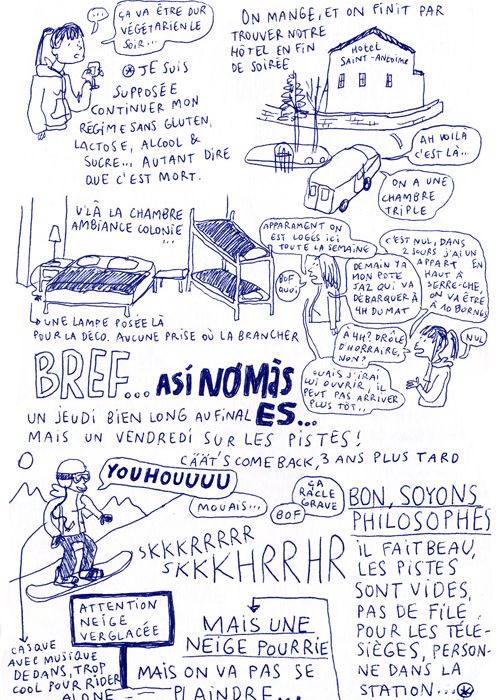 ÇA VA ÊTRE DUR
VÉGÉTARIEN LE
SOIR...
ON MANGE, ET ON FINIT PAR
TROUVER NOTRE
HÔTEL EN FIN
DE SOIRÉE
HOTEL
SAINT-ANTOINE
JE SUIS
SUPPOSÉE
CONTINUER MON
RÉGIME SANS GLUTEN,
LACTOSE, ALCOOL &
SUCRE... AUTANT DIRE
QUE C'EST MORT.
AH VOILÀ
C'EST LÀ...
ON A UNE
CHAMBRE
TRIPLE
V'LÀ LA CHAMBRE
AMBIANCE COLONIE
...
UNE LAMPE POSÉE LÀ
POUR LA DÉCO. AUCUNE PRISE OÙ LA BRANCHER
APPARAMENT ON
EST LOGÉS ICI
TOUTE LA SEMAINE
BOF
QUOI
C'EST NUL, DANS
2 JOURS J'AI UN
APPART EN
HAUT À
SERRE-CHE,
ON VA ÊTRE
À 10 BORNES
DEMAIN YA
MON POTE
JAZ QUI VA
DÉBARQUER À
4H DU MAT
À 4H? DRÔLE
D'HORRAIRE,
NON?
NUL
OUAIS J'IRAI
LUI OUVRIR, IL
PEUT PAS ARRIVER
PLUS TÔT..
BREF... ASÍ NOMÀS
ES...
UN JEUDI BIEN LONG AU FINAL
MAIS UN VENDREDI SUR LES PISTES!
CÄÄT'S COME BACK, 3 ANS PLUS TARD
YOUHOUUUU
MOUAIS...
BOF
ÇA
RACLE
GRAVE
SKKKRRRRR
SKKKHRRHR
BON, SOYONS
PHILOSOPHES
IL FAIT BEAU,
LES PISTES
SONT VIDES,
PAS DE FILE
POUR LES TÉLÉ-
SIÈGES, PERSON-
NE DANS LA
STATION...
ATTENTION
NEIGE
VERGLACÉE
MAIS UNE
NEIGE POURRIE
MAIS ON VA PAS SE
PLAINDRE...
CASQUE
AVEC MUSIQUE
DEDANS, TROP
COOL POUR RIDER
ALONE